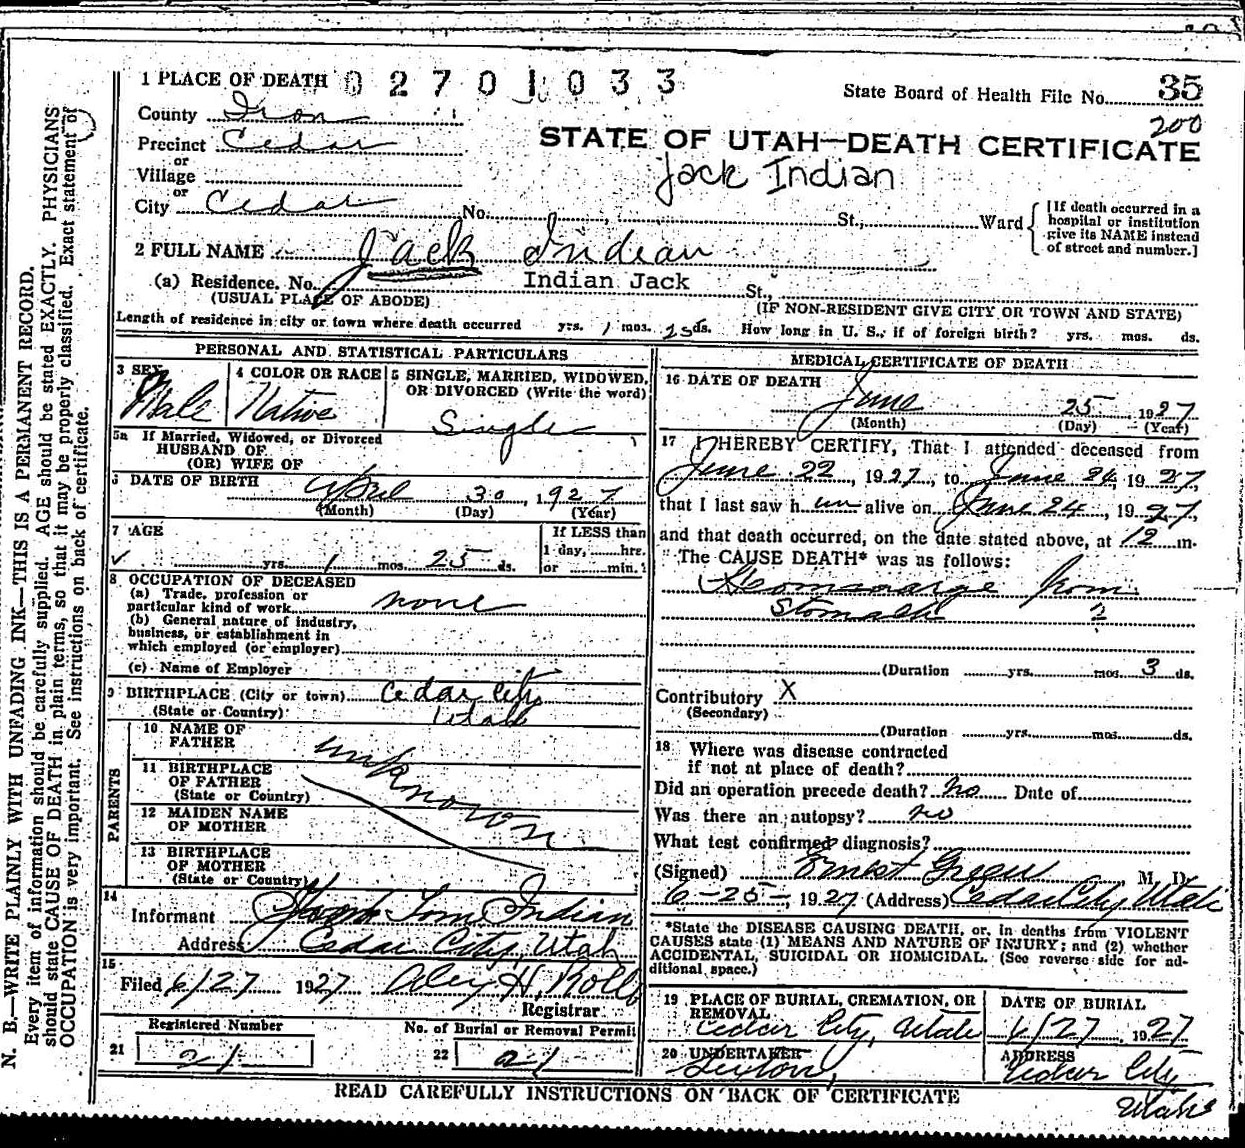 1 PLACE OF DEATH 02701033
State Board of Health File No. 35
200
County Iron
STATE OF UTAH—DEATH CERTIFICATE
Precinct Cedar
or
Village
Jack Indian
or
City Cedar No. St., Ward
[If death occurred in a
hospital or institution
give its NAME instead
of street and number.]
2 FULL NAME Jack Indian
(a) Residence. No. Indian Jack St.,
(USUAL PLACE OF ABODE) (IF NON-RESIDENT GIVE CITY OR TOWN AND STATE)
Length of residence in city or town where death occurred yrs. 1 mos. 25 ds. How long in U. S., if of foreign birth? yrs. mos. ds.
PERSONAL AND STATISTICAL PARTICULARS
3 SEX 4 COLOR OR RACE 5 SINGLE, MARRIED, WIDOWED,
OR DIVORCED (Write the word)
Male Native Single
5a If Married, Widowed, or Divorced
HUSBAND OF
(OR) WIFE OF
6 DATE OF BIRTH April 30, 1927
(Month) (Day) (Year)
7 AGE If LESS than
1 day, hrs.
yrs. 1 mos. 25 ds. or min.
8 OCCUPATION OF DECEASED
(a) Trade, profession or
particular kind of work none
(b) General nature of industry,
business, or establishment in
which employed (or employer)
(c) Name of Employer
9 BIRTHPLACE (City or town) Cedar City
(State or Country) Utah
PARENTS
10 NAME OF
FATHER
unknown
11 BIRTHPLACE
OF FATHER
(State or Country)
12 MAIDEN NAME
OF MOTHER
13 BIRTHPLACE
OF MOTHER
(State or Country)
14
Informant Tom Indian
Address Cedar City, Utah
15
Filed 6/27 1927 Alex H. Rollo
Registrar
Registered Number No. of Burial or Removal Permit
21 21 22 21
MEDICAL CERTIFICATE OF DEATH
16 DATE OF DEATH
June 25 1927
(Month) (Day) (Year)
17 I HEREBY CERTIFY, That I attended deceased from
June 22, 1927, to June 24, 1927,
that I last saw h im alive on June 24, 1927,
and that death occurred, on the date stated above, at 12 m.
The CAUSE DEATH* was as follows:
from
Stomach ?
(Duration yrs. mos. 3 ds.
Contributory X
(Secondary)
(Duration yrs. mos. ds.
18 Where was disease contracted
if not at place of death?
Did an operation precede death? No Date of
Was there an autopsy? no
What test confirmed diagnosis?
(Signed) Ernest M. D.
6-25-, 1927 (Address) Cedar City Utah
*State the DISEASE CAUSING DEATH, or, in deaths from VIOLENT
CAUSES state (1) MEANS AND NATURE OF INJURY; and (2) whether
ACCIDENTAL, SUICIDAL OR HOMICIDAL. (See reverse side for ad-
ditional space.)
19 PLACE OF BURIAL, CREMATION, OR DATE OF BURIAL
REMOVAL
Cedar City, Utah 6/27 1927
20 UNDERTAKER ADDRESS
Sexton, Cedar City
Utah
READ CAREFULLY INSTRUCTIONS ON BACK OF CERTIFICATE
N. B.—WRITE PLAINLY WITH UNFADING INK—THIS IS A PERMANENT RECORD.
Every item of information should be carefully supplied. AGE should be stated EXACTLY. PHYSICIANS
should state CAUSE OF DEATH in plain terms, so that it may be properly classified. Exact statement of
OCCUPATION is very important. See instructions on back of certificate.